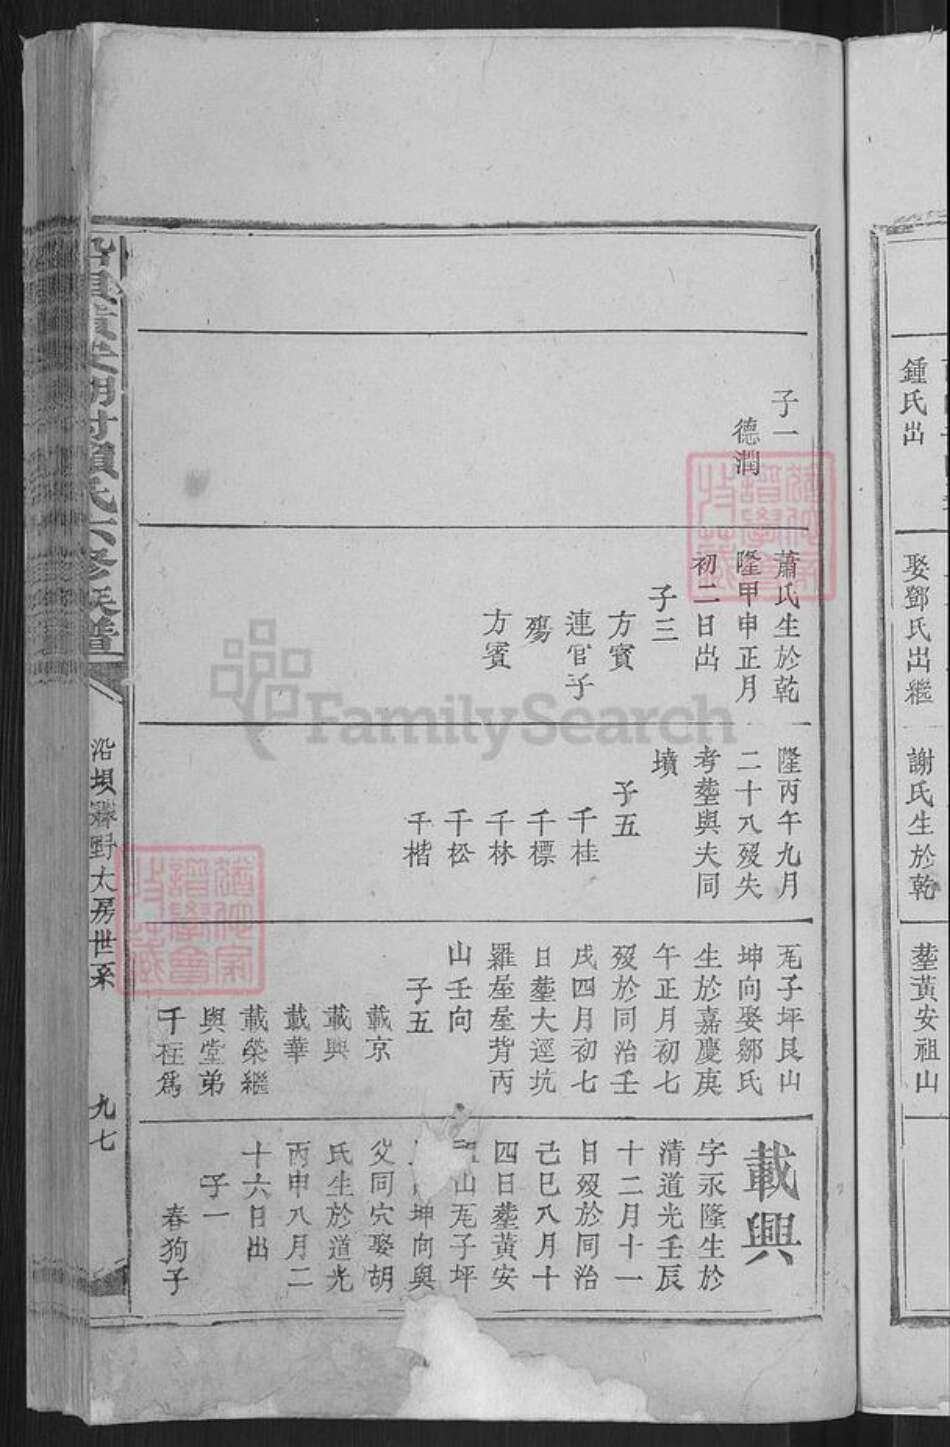 鍾氏出
娶鄧氏出繼
謝氏生於乾
塟黃安祖山
子一
德潤
蕭氏生於乾
隆甲申正月
初二日出
子三
方賓
連官子
殤
方賓
隆丙午九月
二十八歿失
考塟與夫同
墳
子五
千桂
千標
千林
千松
千楷
尨子坪艮山
坤向娶鄒氏
生於嘉慶庚
午正月初七
歿於同治壬
戌四月初七
日塟大逕坑
羅屋屋背丙
山壬向
子五
載京
載興
載華
載榮繼
與堂弟
千在為
載興
字永隆生於
清道光壬辰
十二月十一
日歿於同治
己巳八月十
四日塟黃安
山尨子坪
坤向與
父同穴娶胡
氏生於道光
丙申八月二
十六日出
子一
春狗子
賴氏六修族譜
沿垻 太房世系
九七
FamilySearch